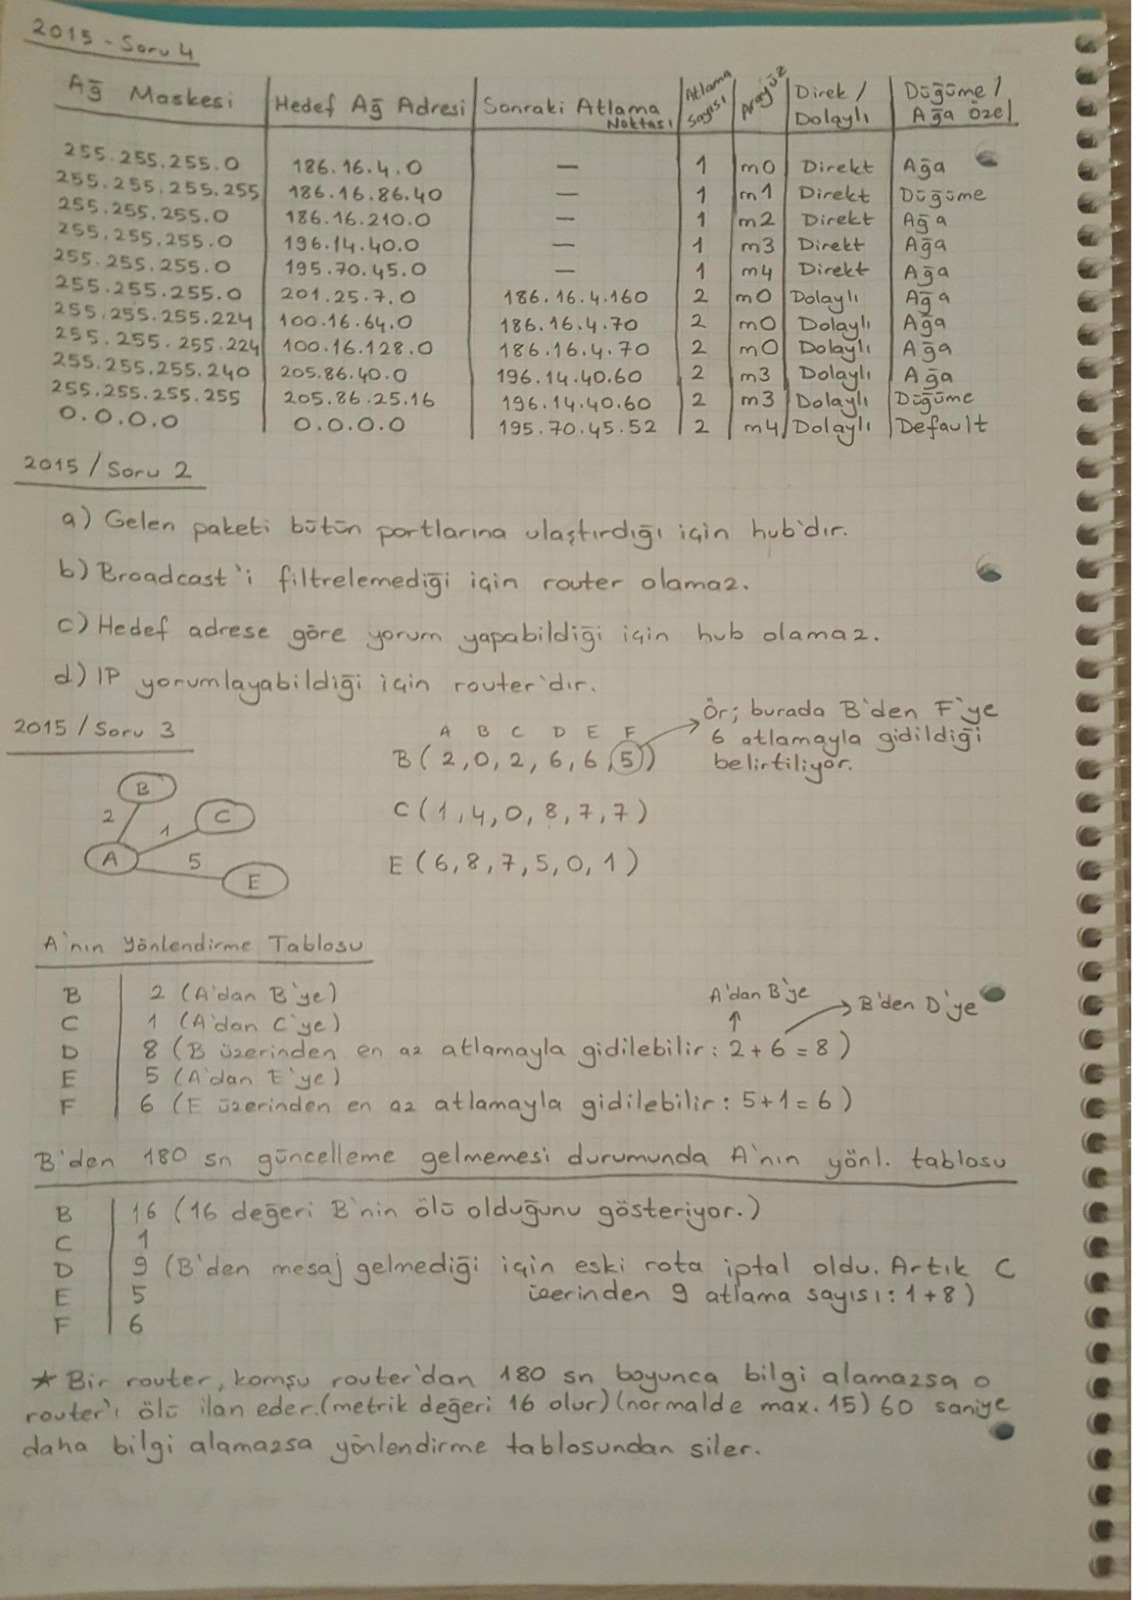 2015 - Soru 4
Ağ Maskesi | Hedef Ağ Adresi | Sonraki Atlama Noktası | Atlama Sayısı | Arayüz | Direk / Dolaylı | Düğüme / Ağa özel
255.255.255.0 | 186.16.4.0 | — | 1 | m0 | Direkt | Ağa
255.255.255.255 | 186.16.86.40 | — | 1 | m1 | Direkt | Düğüme
255.255.255.0 | 186.16.210.0 | — | 1 | m2 | Direkt | Ağa
255.255.255.0 | 196.14.40.0 | — | 1 | m3 | Direkt | Ağa
255.255.255.0 | 195.70.45.0 | — | 1 | m4 | Direkt | Ağa
255.255.255.0 | 201.25.7.0 | 186.16.4.160 | 2 | m0 | Dolaylı | Ağa
255.255.255.224 | 100.16.64.0 | 186.16.4.70 | 2 | m0 | Dolaylı | Ağa
255.255.255.224 | 100.16.128.0 | 186.16.4.70 | 2 | m0 | Dolaylı | Ağa
255.255.255.240 | 205.86.40.0 | 196.14.40.60 | 2 | m3 | Dolaylı | Ağa
255.255.255.255 | 205.86.25.16 | 196.14.40.60 | 2 | m3 | Dolaylı | Düğüme
0.0.0.0 | 0.0.0.0 | 195.70.45.52 | 2 | m4 | Dolaylı | Default
2015 / Soru 2
a) Gelen paketi bütün portlarına ulaştırdığı için hub'dır.
b) Broadcast'i filtrelemediği için router olamaz.
c) Hedef adrese göre yorum yapabildiği için hub olamaz.
d) IP yorumlayabildiği için router'dır.
2015 / Soru 3
A B C D E F
B ( 2, 0, 2, 6, 6, 5 )
Ör; burada B'den F'ye
6 atlamayla gidildiği
belirtiliyor.
C ( 1, 4, 0, 8, 7, 7 )
E ( 6, 8, 7, 5, 0, 1 )
B
2
C
1
A
5
E
A'nın Yönlendirme Tablosu
B | 2 (A'dan B'ye)
A'dan B'ye
B'den D'ye
C | 1 (A'dan C'ye)
D | 8 (B üzerinden en az atlamayla gidilebilir : 2 + 6 = 8 )
E | 5 (A'dan E'ye)
F | 6 (E üzerinden en az atlamayla gidilebilir : 5+1=6 )
B'den 180 sn güncelleme gelmemesi durumunda A'nın yönl. tablosu
B | 16 (16 değeri B'nin ölü olduğunu gösteriyor.)
C | 1
D | 9 (B'den mesaj gelmediği için eski rota iptal oldu. Artık C
E | 5 üzerinden 9 atlama sayısı : 1 + 8 )
F | 6
★ Bir router, komşu router'dan 180 sn boyunca bilgi alamazsa o
router'ı ölü ilan eder.(metrik değeri 16 olur)(normalde max. 15) 60 saniye
daha bilgi alamazsa yönlendirme tablosundan siler.